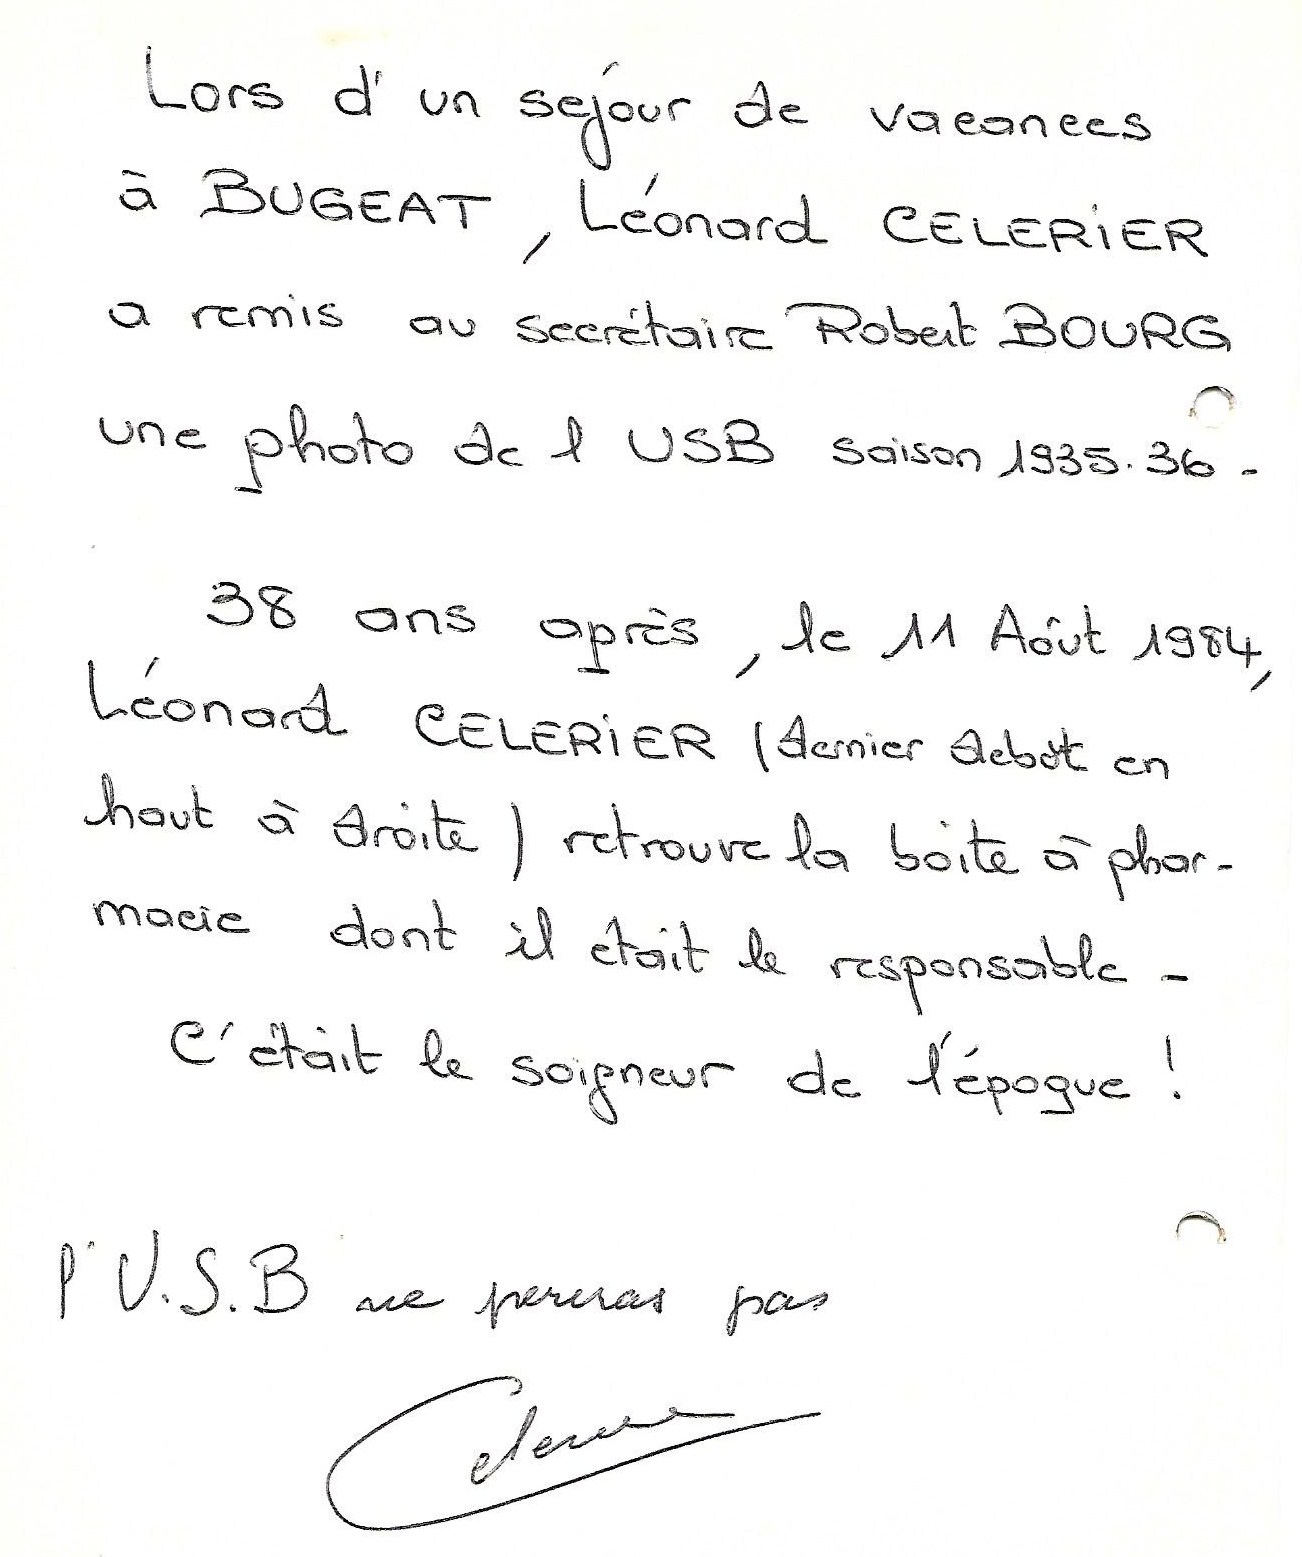 Lors d'un séjour de vacances
à BUGEAT, Léonard CELERiER
a remis au secrétaire Robert BOURG
une photo de l USB saison 1935.36 -
38 ans après, le 11 Aôut 1984,
Léonard CELERiER (dernier debût en
haut à droite) retrouve la boite à phar-
macie dont il était le responsable -
C'était le soigneur de l'époque !
l'U.S.B ne periras pas
Celerier